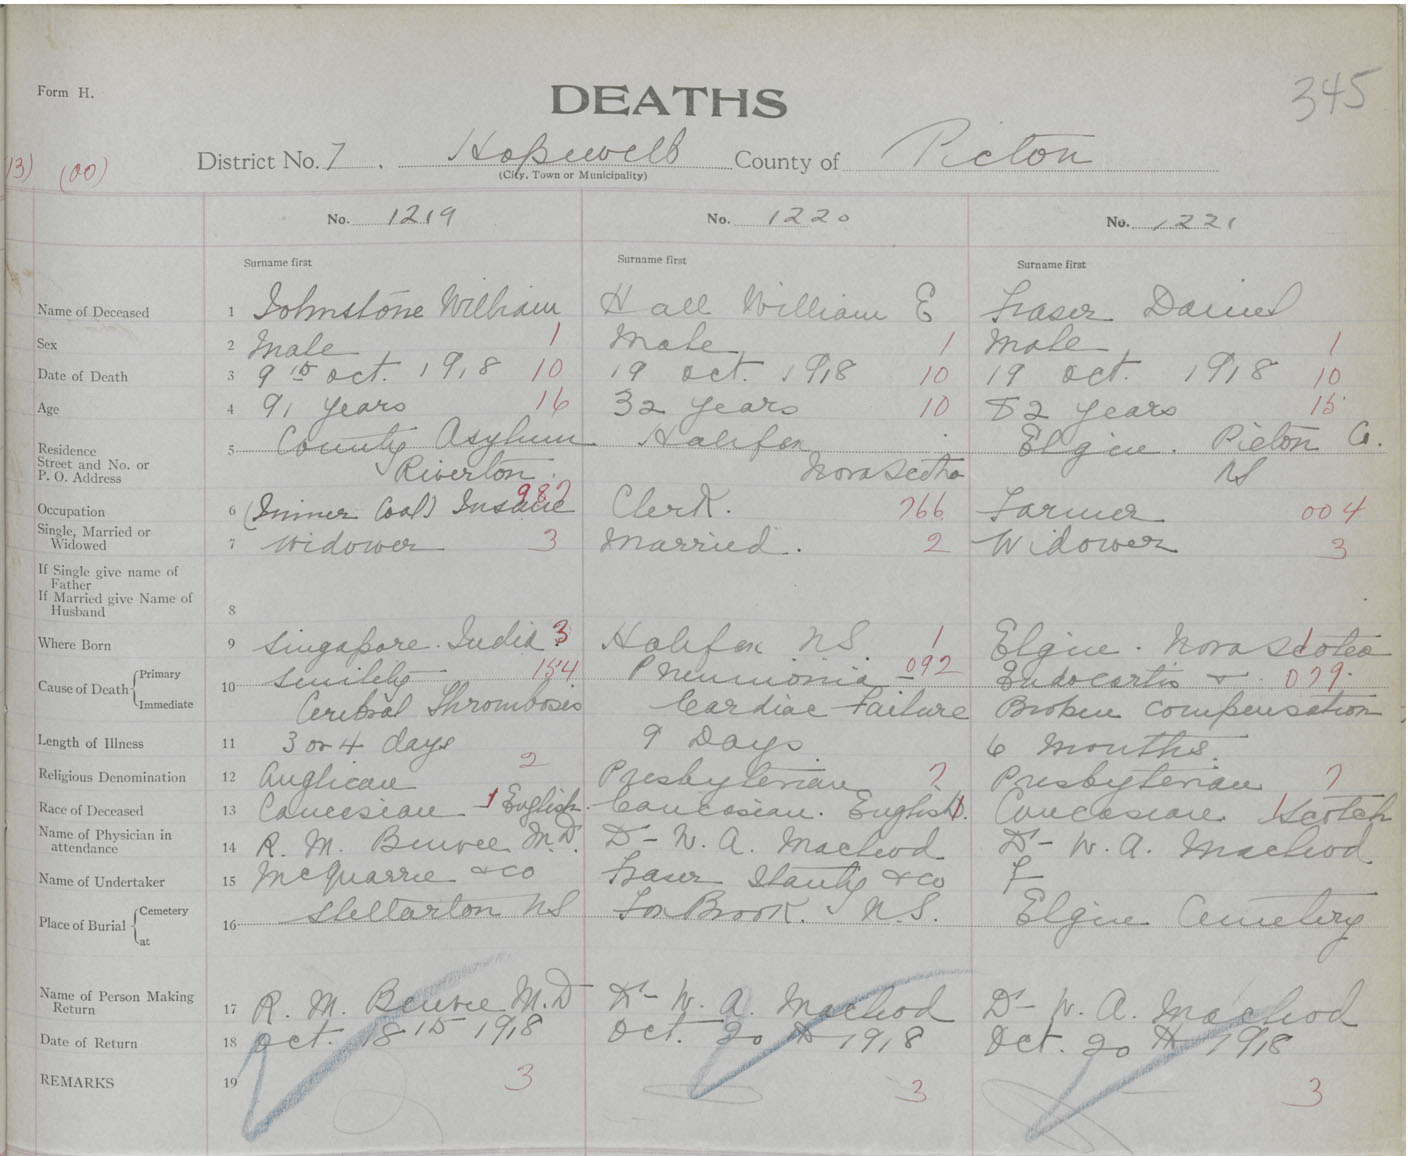 Form H.
DEATHS
345
District No. 7. Hopewell County of Pictou
(City, Town or Municipality)
13) (00)
No. 1219 No. 1220 No. 1221
Surname first Surname first Surname first
Name of Deceased 1 Johnstone William Hall William E Fraser Daniel
Sex 2 Male 1 Male 1 Male 1
Date of Death 3 9th Oct. 1918 10 19 Oct. 1918 10 19 Oct. 1918 10
Age 4 91 years 16 32 years 10 82 years 15
Residence
Street and No. or
P. O. Address
5 County Asylum Halifax Elgin. Pictou Co.
Riverton. Nova Scotia NS
Occupation 6 (Miner Coal) Insane 987 Clerk. 766 Farmer 004
Single, Married or
Widowed
7 Widower 3 Married. 2 Widower 3
If Single give name of
Father
If Married give Name of
Husband
8
Where Born 9 Singapore. India 3 Halifax NS. 1 Elgin. Nova Scotia 1
Cause of Death Primary Immediate 10
Senility 154 Pneumonia – 092 Endocartis & 079.
Cerebral Thrombosis Cardiac Failure Broken compensation
Length of Illness 11 3 or 4 days 9 Days 6 Months.
Religious Denomination 12 Anglican 2 Presbyterian 7 Presbyterian 7
Race of Deceased 13 Caucasian 1 English. Caucasian. English. 1 Caucasian. 1 Scotch
Name of Physician in
attendance
14 R. M. Benvie M.D. Dr– W. A. Macleod Dr– W. A. Macleod
Name of Undertaker 15 McQuarrie & Co Fraser & Co F
Place of Burial Cemetery at 16 Stellarton NS Fox Brook. N.S. Elgin Cemetery
Name of Person Making
Return
17 R. M. Benvie M.D Dr– W. A. Macleod Dr– W. A. Macleod
Date of Return 18 Oct. 18th 1918 Oct. 20th 1918 Oct. 20th 1918
REMARKS 19 3 3 3